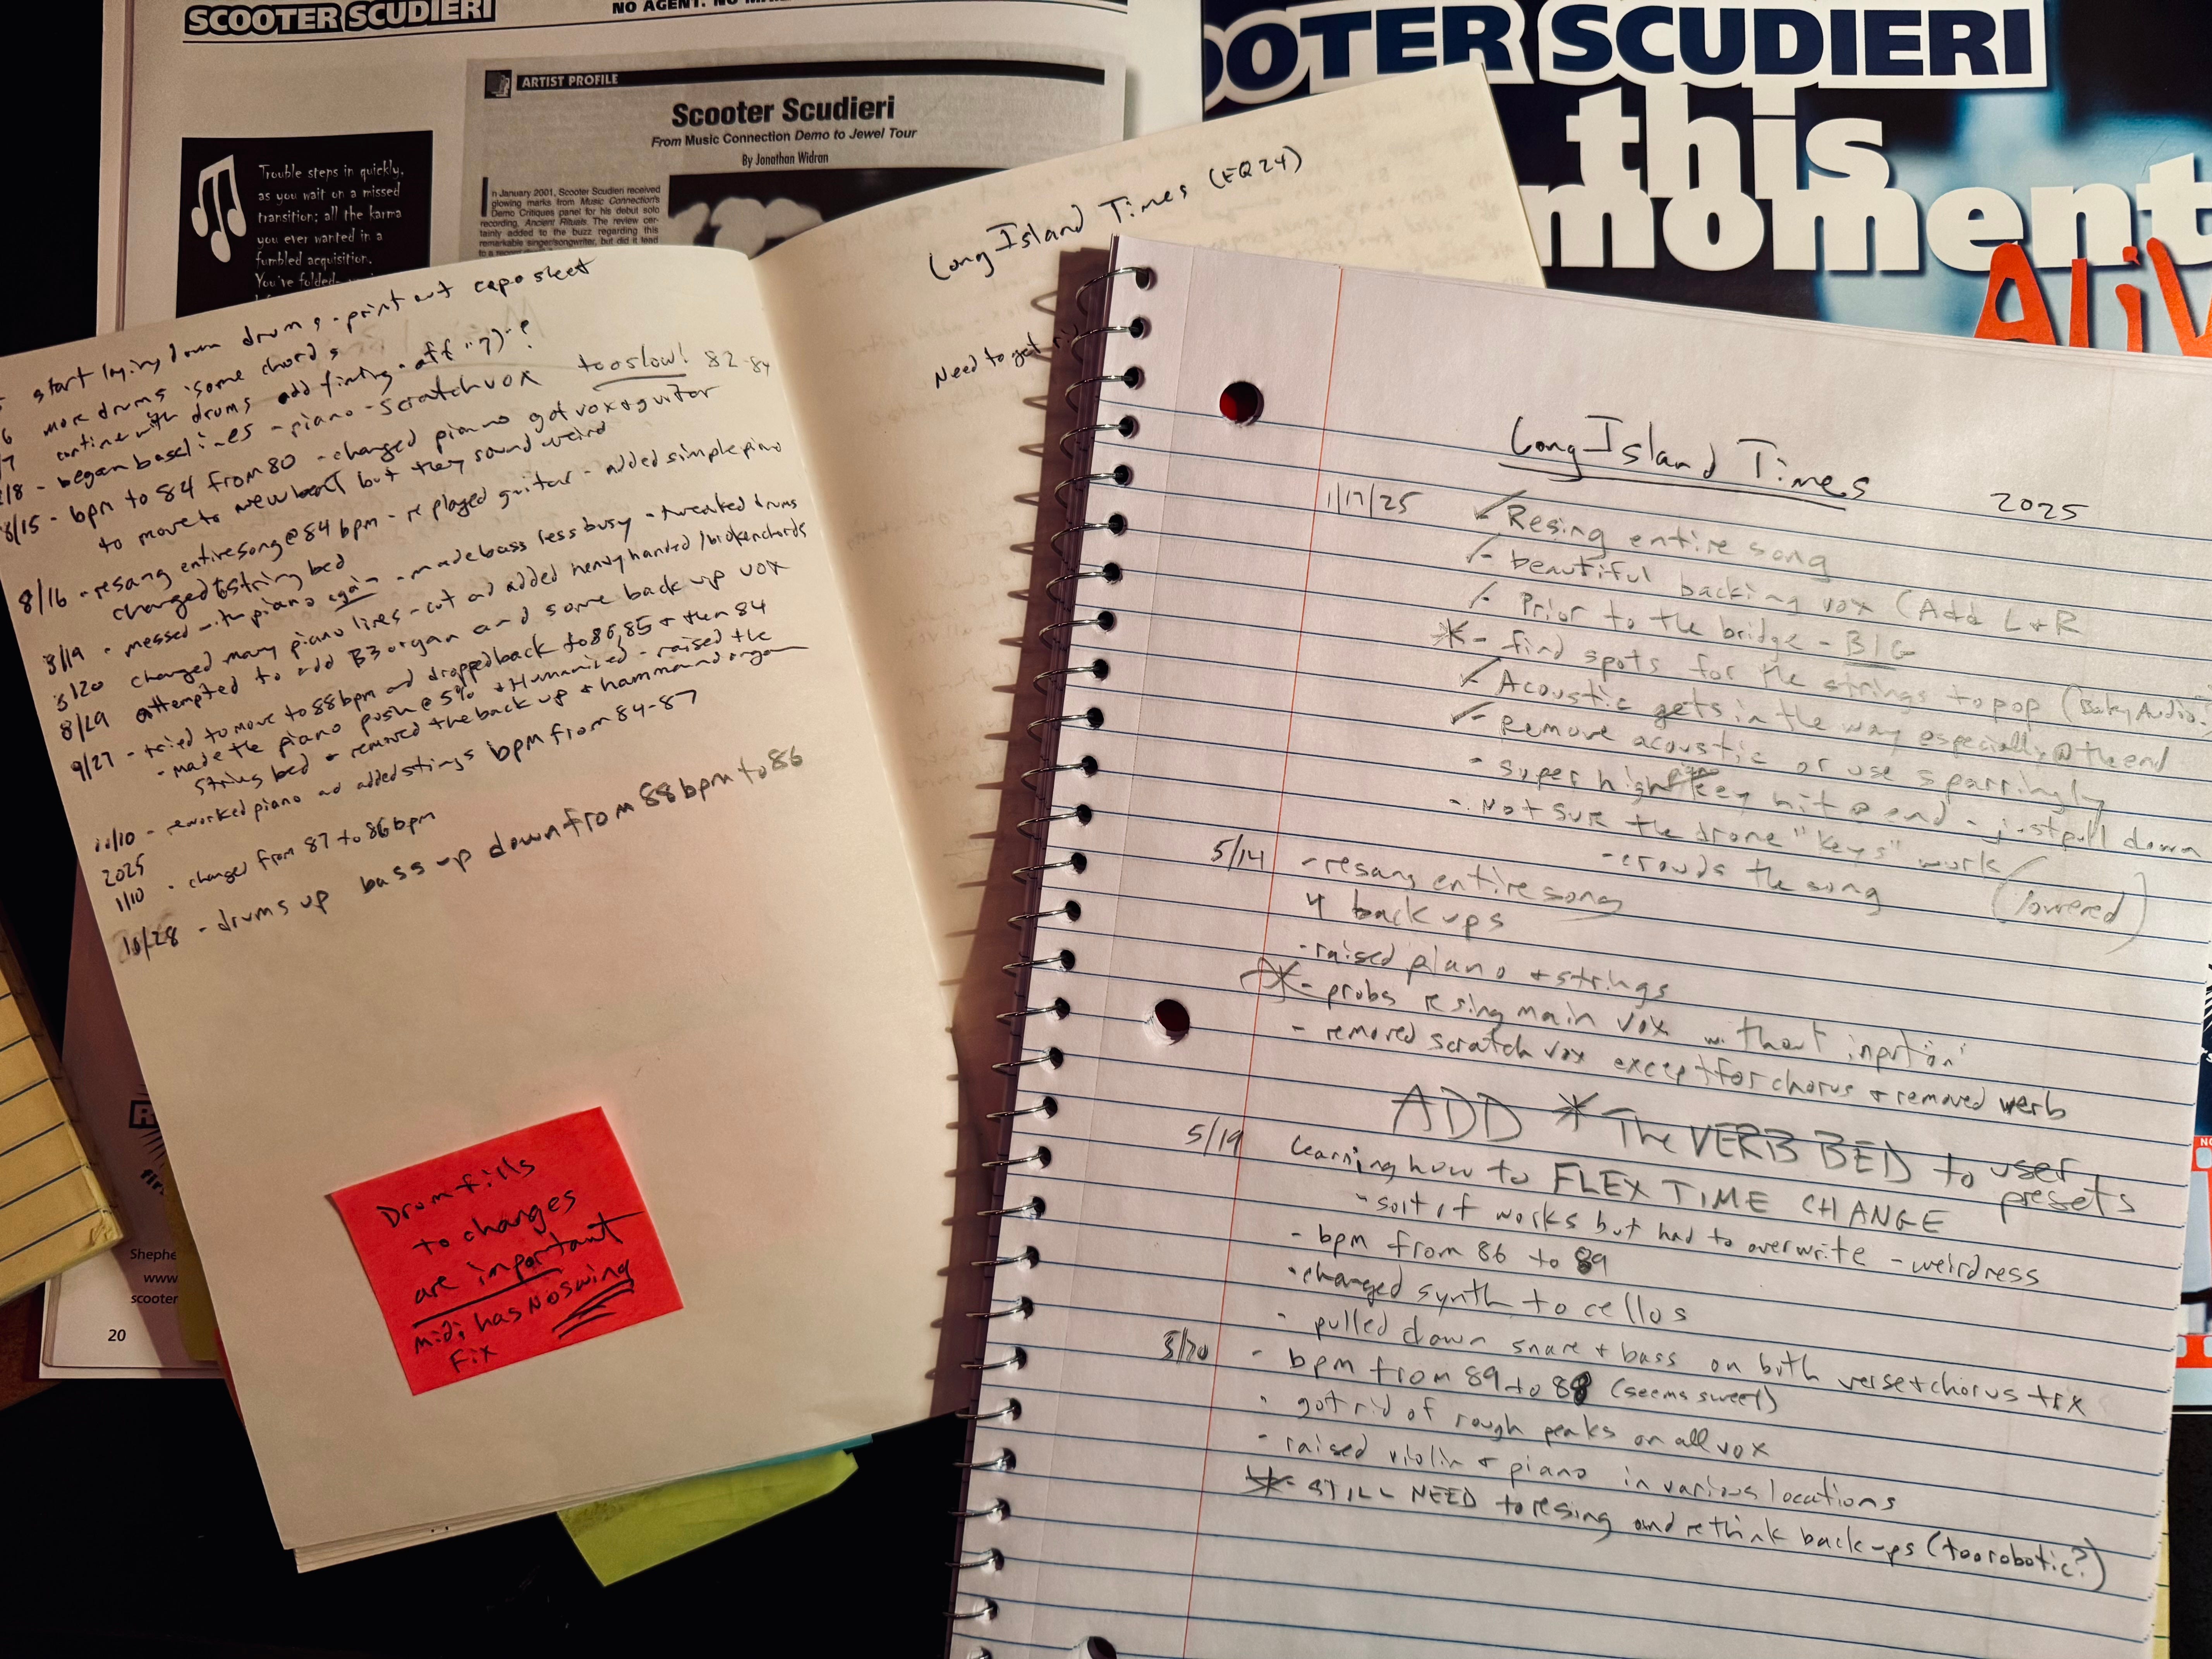 SCOOTER SCUDIERI
NO AGENT. NO
ARTIST PROFILE
Scooter Scudieri
From Music Connection Demo to Jewel Tour
By Jonathan Widran
In January 2001, Scooter Scudieri received
glowing marks from Music Connection's
Demo Critiques panel for his debut solo
recording, Ancient Rituals. The review cer-
tainly added to the buzz regarding this
remarkable singer/songwriter, but did it lead
Trouble steps in quickly,
as you wait on a missed
transition; all the karma
you ever wanted in a
fumbled acquisition.
You've folded
OOTER SCUDIERI
this
moment
AliV
Shephe
www.
scooter
20
start laying down drums - print out capo sheet
6 more drums some chords
7 continue with drums add finding - off "7)"?
/8 - began baselines - piano - scratch vox too slow! 82-84
8/15 - bpm to 84 from 80 - changed piano got vox + guitar
to move to new but they sound weird
8/16 - resang entire song @ 84 bpm - replayed guitar - added simple piano
changed string bed
8/19 - messed with piano again - made bass less busy - tweaked drums
8/20 changed many piano lines - cut ad added heavy handed / broken chords
8/29 attempted to add B3 organ and some back up vox
9/27 - tried to move to 88 bpm and dropped back to 86, 85 + then 84
- made the piano push @ 5% + Humanized - raised the
string bed + removed the back up + hammond organ
10/10 - reworked piano ad added stings bpm from 84-87
2025
1/10 - changed from 87 to 86 bpm
10/28 - drums up bass up down from 88 bpm to 86
Drum fills
to changes
are important
midi has No swing
Fix
Long Island Times (EQ24)
Need to get ri
Long Island Times
2025
1/17/25 - Resing entire song
- beautiful backing vox (Add L + R
- Prior to the bridge - BIG
* - find spots for the strings to pop (Baby Audio)
- Acoustic gets in the way especially @ the end
- Remove acoustic or use sparringly
- super high key hit @ end - just pull down
- Not sure the drone "keys" work
- crowds the song (lowered)
5/14 - resang entire song
4 back ups
- raised piano + strings
* - probs resing main vox without
- removed scratch vox except for chorus + removed verb
ADD * The VERB BED to user
presets
5/19 Learning how to FLEX TIME CHANGE
- sort of works but had to overwrite - weirdness
- bpm from 86 to 89
- changed synth to cellos
- pulled down snare + bass on both verse + chorus trx
5/20 - bpm from 89 to 88 (seems sweet)
- got rid of rough peaks on all vox
- raised violin + piano in various locations
* - STILL NEED to resing and rethink back-ups (too robotic?)